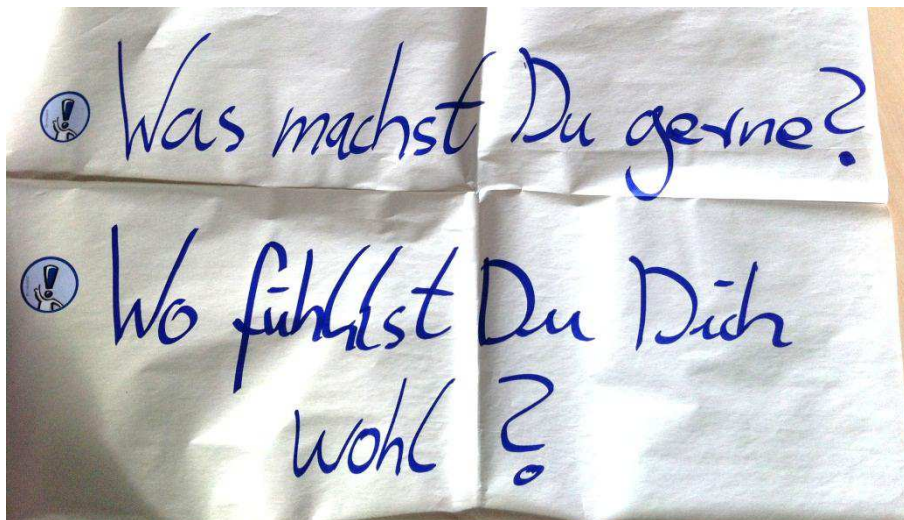 Was machst Du gerne?
Wo fühllst Du Dich
wohl?